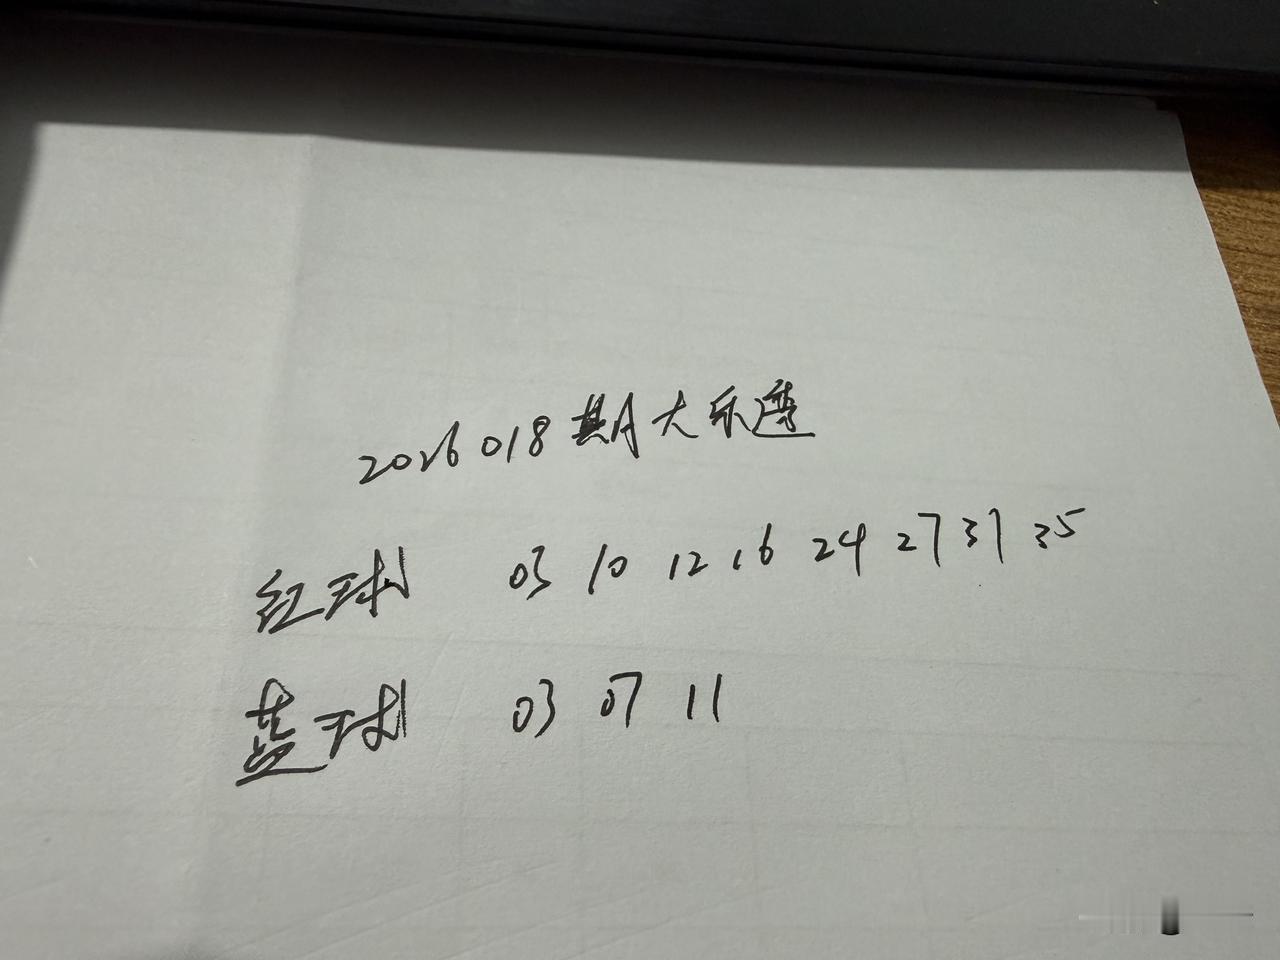 2026018期大乐透
红球 03 10 12 16 24 27 31 35
蓝球 03 07 11